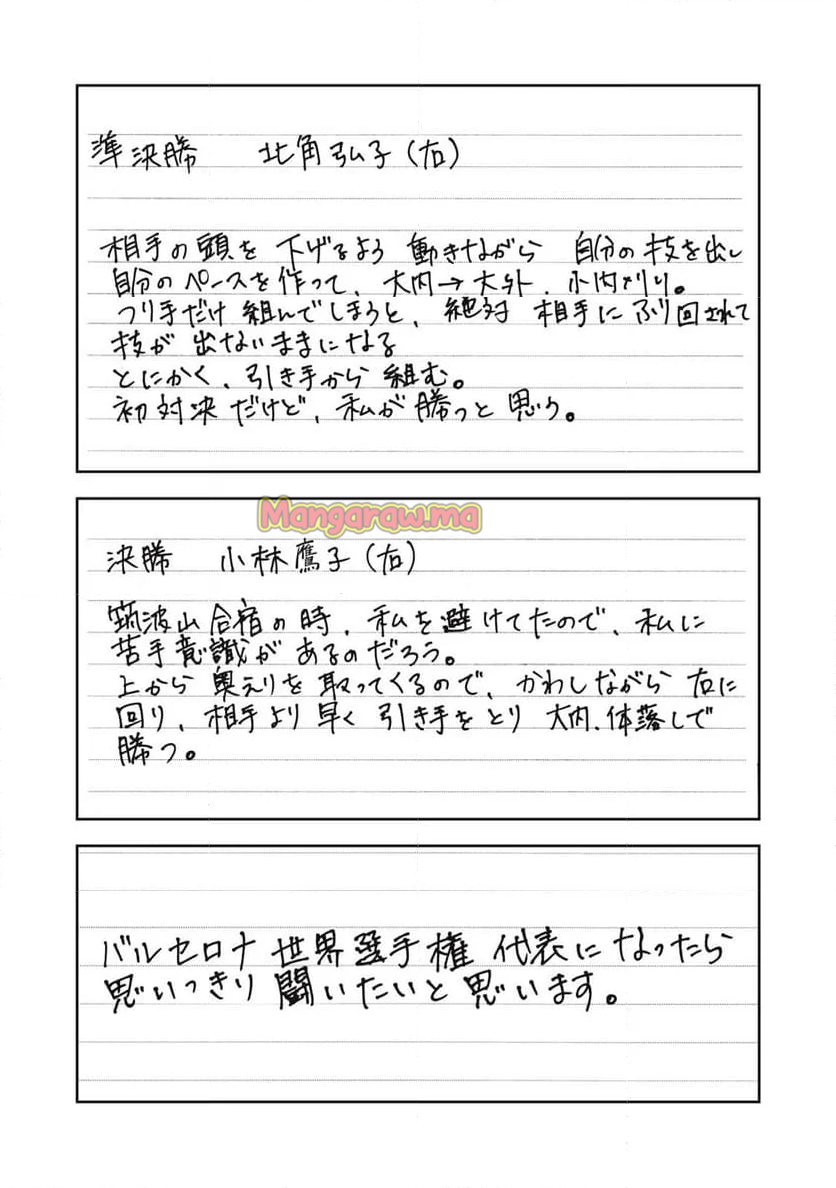 準決勝　北角弘子(右)
相手の頭を 下げるよう 動きながら 自分の技を出し
自分のペースを作って、大内→大外、小内刈り。
つり手だけ 組んでしまうと、絶対 相手に ふり回されて
技が 出ないままになる
とにかく、引き手から 組む。
初対決だけど、私が 勝つと 思う。
Mangaraw.ma
決勝　小林鷹子(右)
筑波山合宿の時、私を避けてたので、私に
苦手意識が あるのだろう。
上から 奥えりを 取ってくるので、かわしながら 右に
回り、相手より 早く 引き手を とり 大内、体落しで
勝つ。
バルセロナ 世界選手権 代表に なったら
思いっきり 闘いたいと 思います。